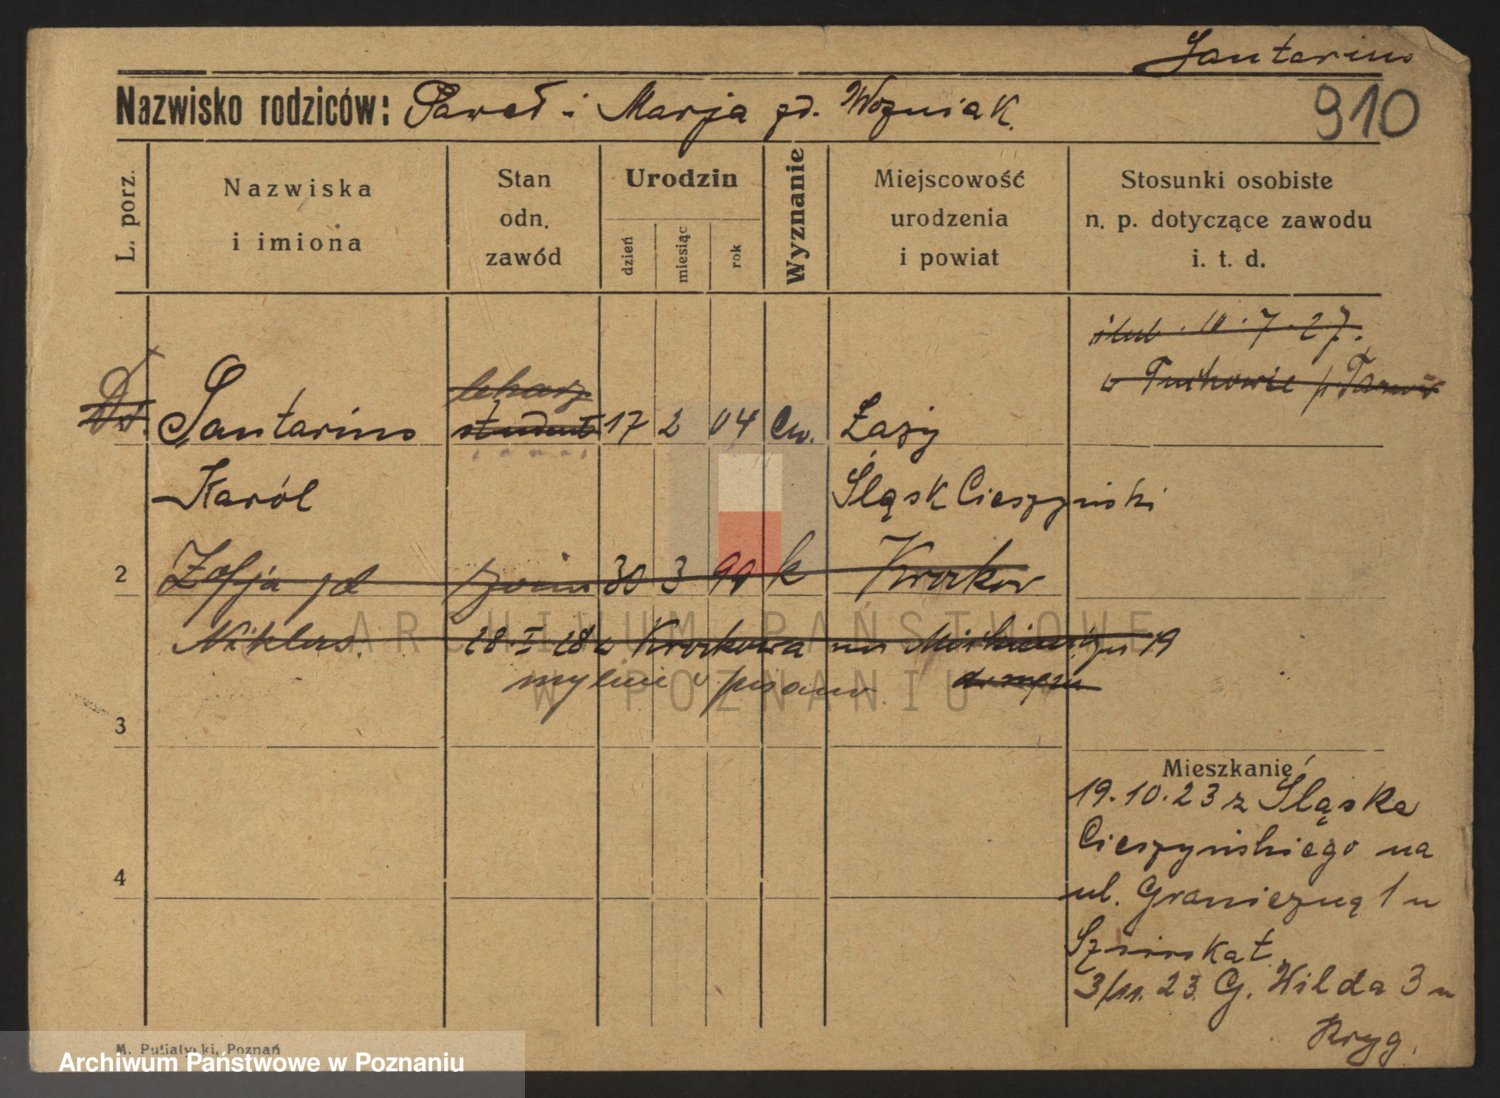 Santarius
Nazwisko rodziców: Paweł i Marja zd. Wozniak.
910
L. porz.
Nazwiska
i imiona
Stan
odn.
zawód
Urodzin
dzień
miesiąc
rok
Wyznanie
Miejscowość
urodzenia
i powiat
Stosunki osobiste
n. p. dotyczące zawodu
i. t. d.
ślub. 10.7.27.
w Tuchowie p. Tarnów
lekarz
Santarius student 17 2 04 Ew. Łazy
Karól Śląsk Cieszyński
2 Zofja zd 30 3 99 k Kraków
Niklas. 28.I.28 z Krakowa 19
mylnie pisano
3
Mieszkanie
19.10.23 z Śląska
Cieszyńskiego na
4
ul. Graniczną 1 u
3/11.23. G. Wilda 3 u
Kryg.
ARCHIWUM PAŃSTWOWE
W POZNANIU
M. Putiatycki, Poznań
Archiwum Państwowe w Poznaniu